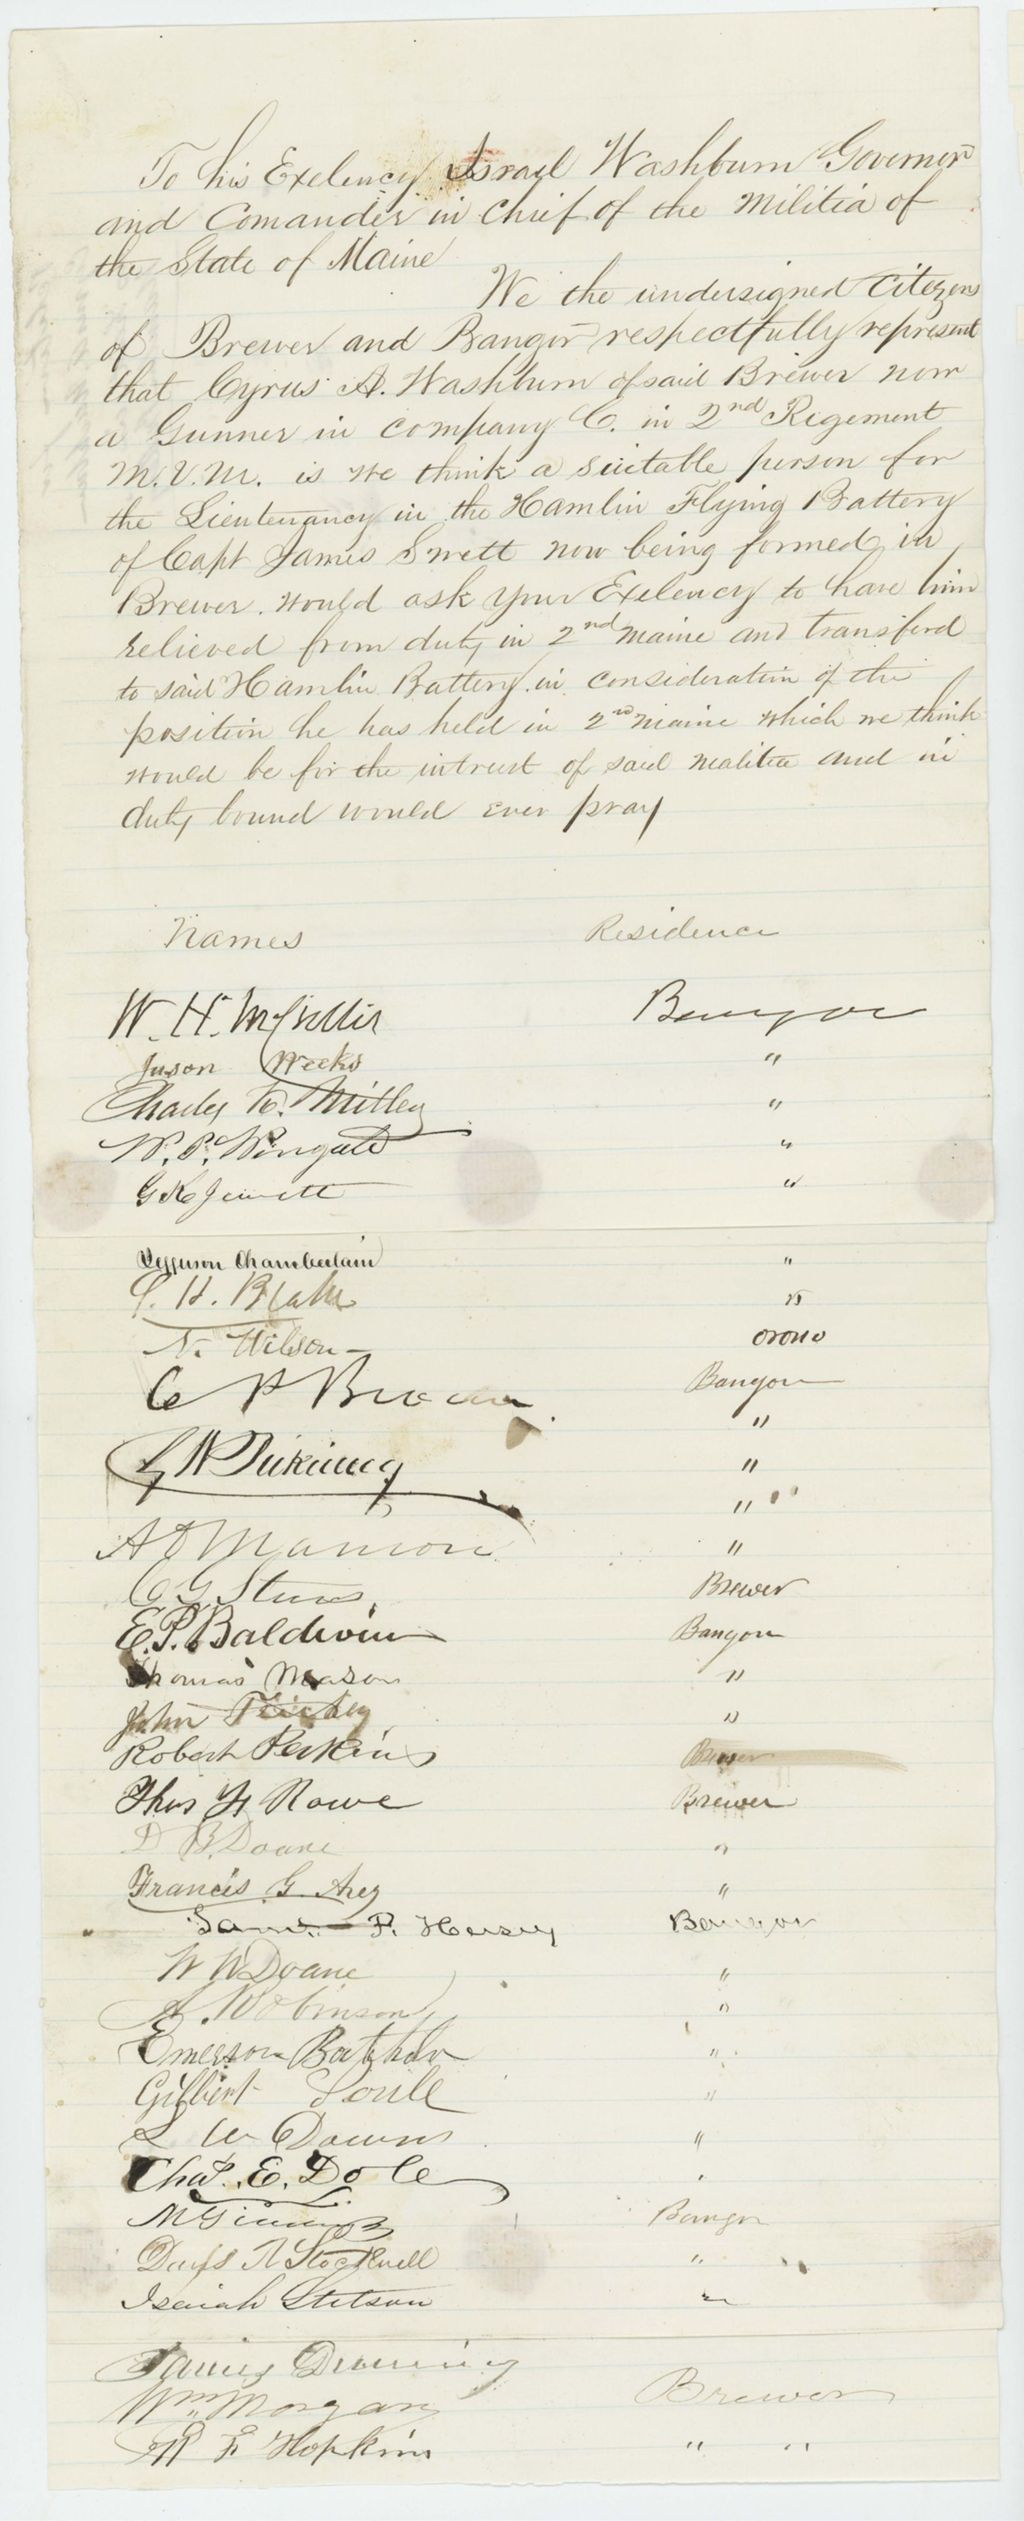 To his Exelency Israel Washburn Governor
and Comander in Chief of the Militia of
the State of Maine
We the undersigned Citezens
of Brewer and Bangor respectfully represent
that Cyrus A. Washburn of said Brewer now
a Gunner in company C. in 2nd Regement
M.V.M. is we think a suitable person for
the Lieutenancy in the Hamlin Flying Battery
of Capt James Swett now being formed in
Brewer. would ask your Exelency to have him
relieved from duty in 2nd Maine and transferd
to said Hamlin Battery. in consideration of the
position he has held in 2nd Maine which we think
would be for the intrust of said malitia and in
duty bound would ever pray
Names Residence
W. H. McCrillis Bangor
Jason Weeks "
Charles K. Miller "
W. P. Wingate "
G K Jewett "
Jefferson Chamberlain "
C. H. "
N. Wilson Orono
C P Brown Bangor
"
G W Pickering "
"
A D Manson "
C G Sterns Brewer
E. P. Baldwin Bangor
Thomas Mason "
John "
Robert Perkins Brewer
Thos H Rowe Brewer
D B. Doane "
Francis G. Arey "
Saml F. Hersey Bangor
W W Doane "
A. Robinson "
Emerson Batchelor "
Gilbert Soule "
L W Downs "
Chas. E. Dole
M Bangor
Davis R Stockwell "
Isaiah Stetson "
James Dunning
Wm. Morgan Brewer
F Hopkins " "